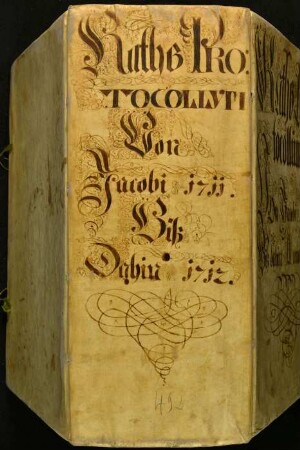 Raths Pro:
TOCOLLUM
Von
Jacobi 1711.
Biß
1712.
492